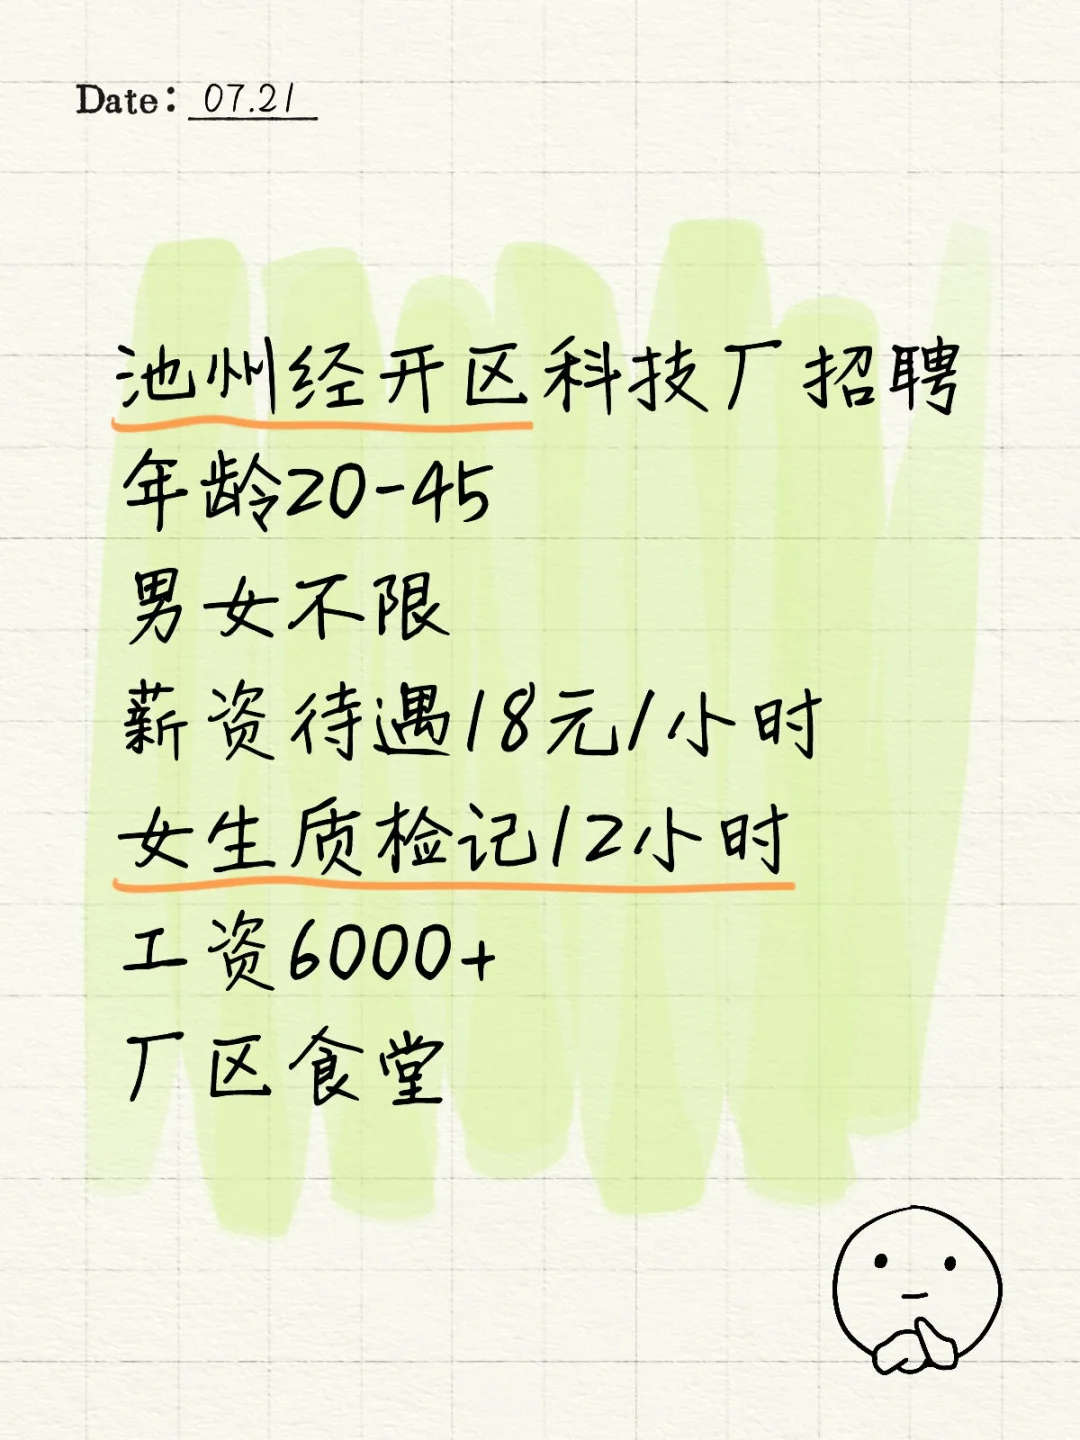 Date: 07.21
池州经开区科技厂招聘
年龄20-45
男女不限
薪资待遇18元/小时
女生质检记12小时
工资6000+
厂区食堂